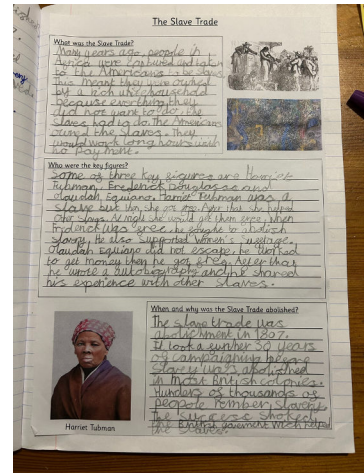 The Slave Trade
What was the Slave Trade?
Many years ago, people in
Africa were captured and taken
to the Americans to be slaves
this meant they were owned
by a rich white household
because everything they
did not want to do. the
slaves had to do. The Americans
owned the slaves. They
would work long hours with
no payment.
Who were the key figures?
Some of three key figures are Harriet
Tubman, Frederick Douglass and
Olaudah, Equiano. Harriet Tubman was a
slave but then, she got free. After that she helped
other slaves. At night she would get them free, when
Frederick was free he fought to abolish
slavery. He also supported women's suffrage.
Olaudah Equiano did not escape, he worked
to get money then he got free. After that
he wrote a autobiography and he shared
his experience with other slaves.
When and why was the Slave Trade abolished?
The slave trade was
abolishment in 1807.
It took a further 30 years
of campaigning before
slavery was abolished
in most British colonies.
Hunders of thousands of
peopole rember slavery
The success
the British goverment which helped
the slaves.
Harriet Tubman